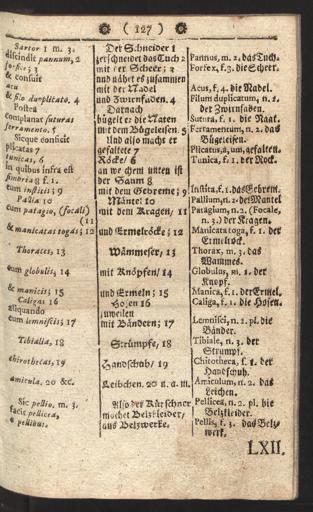 ( 127 )
Sartor 1 m. 3.
discindit pannum, 2
forfice; 3
& consuit
acu
& filo duplicato. 4
Postea
complanat suturas
ferramento. 5
Sicque conficit
plicatas 7
tunicas, 6
in quibus infra est
fimbria 8 f. 1.
cum institis; 9
Pallia 10
cum patagio, (focali)
(11
& manicatas togas; 12
Thoraces, 13
cum globulis, 14
& manicis; 15
Caligas 16
aliquando
cum lemniscis; 17
Tibialia, 18
chirothecas, 19
amicula. 20 &c.
Sic pellio, m. 3.
facit pellicea,
e pellibus.
Der Schneider 1
zerschneidet das Tuch 2
mit der Scheer; 3
und nähet es zusammen
mit der Nadel
und Zwirnfaden. 4
Darnach
bügelt er die Naten
mit dem Bügeleisen. 5
Und also macht er
gefaltete 7
Röcke/ 6
an welchem unten ist
der Saum 8
mit dem Gebreme; 9
Mäntel 10
mit dem Kragen, 11
und Ermelröcke; 12
Wämmeser, 13
mit Knöpfen/ 14
und Ermeln; 15
Hosen 16
zuweilen
mit Bändern; 17
Strümpfe, 18
Handschuh/ 19
Leibchen. 20 u. a. m.
Also der Kürschner
machet Belzkleider,
aus Belzwerke.
Pannus, m. 2. das Tuch.
Forfex, f. 3. die Scheer.
Acus, f. 4. die Nadel.
Filum duplicatum, n. 2.
der Zwirnfaden.
Sutura, f. 1. die Naat.
Ferramentum, n. 2. das
Bügeleisen.
Plicatus, a, um, gefalten.
Tunica, f. 1. der Rock.
Instita, f. 1. das Gebrem.
Pallium, n. 2. der Mantel
Patagium, n. 2. (Focale,
n. 3.) der Kragen.
Manicata toga, f. 1. der
Ermelrock.
Thorax, m. 3. das
Wammes.
Globulus, m. 2. der
Knopf.
Manica, f. 1. der Ermel.
Caliga, f. 1. die Hosen.
Lemnisci, n. 2. pl. die
Bänder.
Tibiale, n. 3. der
Strumpf.
Chirotheca, f. 1. der
Handschuh.
Amiculum, n. 2. das
Leibchen.
Pellicea, n. 2. pl. die
Belzkleider.
Pellis, f. 3. das Belz-
werk.
LXII.